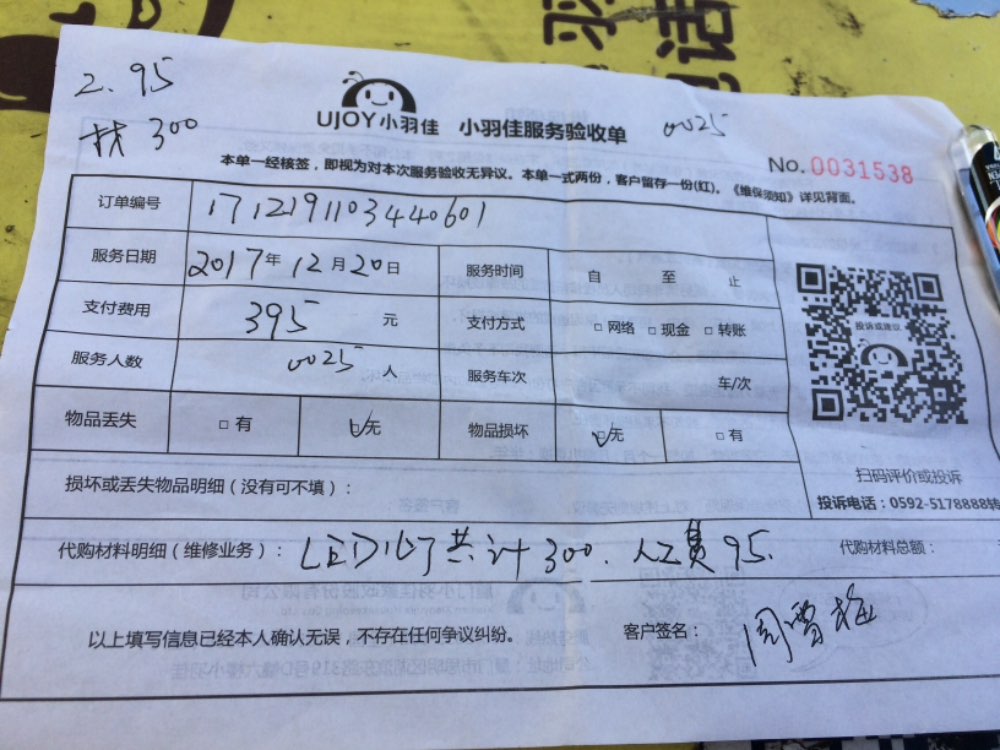 2. 95
扶 300
UJOY小羽佳 小羽佳服务验收单 0025
No. 0031538
本单一经核签，即视为对本次服务验收无异议。本单一式两份，客户留存一份(红)。《维保须知》详见背面。
订单编号 1712191103440601
服务日期 2017年12月20日 服务时间 自 至 止
支付费用 395 元 支付方式 □网络 □现金 □转账
服务人数 0025 人 服务车次 车/次
物品丢失 □有 ☑无 物品损坏 ☑无 □有
投诉或建议
扫码评价或投诉
投诉电话：0592-5178888转
损坏或丢失物品明细（没有可不填）：
代购材料明细（维修业务）：LED灯共计300. 人工费95. 代购材料总额：
以上填写信息已经本人确认无误，不存在任何争议纠纷。 客户签名：周雪梅